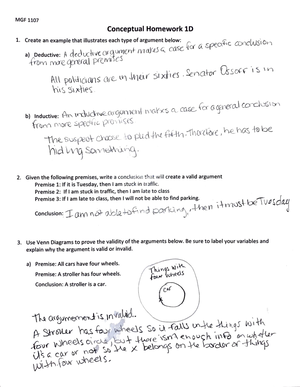 MGF 1107
Conceptual Homework 1D
1. Create an example that illustrates each type of argument below:
a) Deductive: A deductive argument makes a case for a specific conclusion
from more general premises
All politicians are in their sixties. Senator Ossoff is in
his sixties.
b) Inductive: An inductive argument makes a case for a general conclusion
from more specific premises
The suspect choose to plead the fifth. Therefore, he has to be
hiding something.
2. Given the following premises, write a conclusion that will create a valid argument
Premise 1: If it is Tuesday, then I am stuck in traffic.
Premise 2: If I am stuck in traffic, then I am late to class
Premise 3: If I am late to class, then I will not be able to find parking.
Conclusion: I am not able to find parking, then it must be Tuesday
3. Use Venn Diagrams to prove the validity of the arguments below. Be sure to label your variables and
explain why the argument is valid or invalid.
a) Premise: All cars have four wheels.
Premise: A stroller has four wheels.
Conclusion: A stroller is a car.
Things with
four wheels
car
x
The arguement is invalid.
A stroller has four wheels so it falls into the things with
four wheels circle, but there isn't enough info on whether
it's a car or not so the x belongs on the border of things
with four wheels.